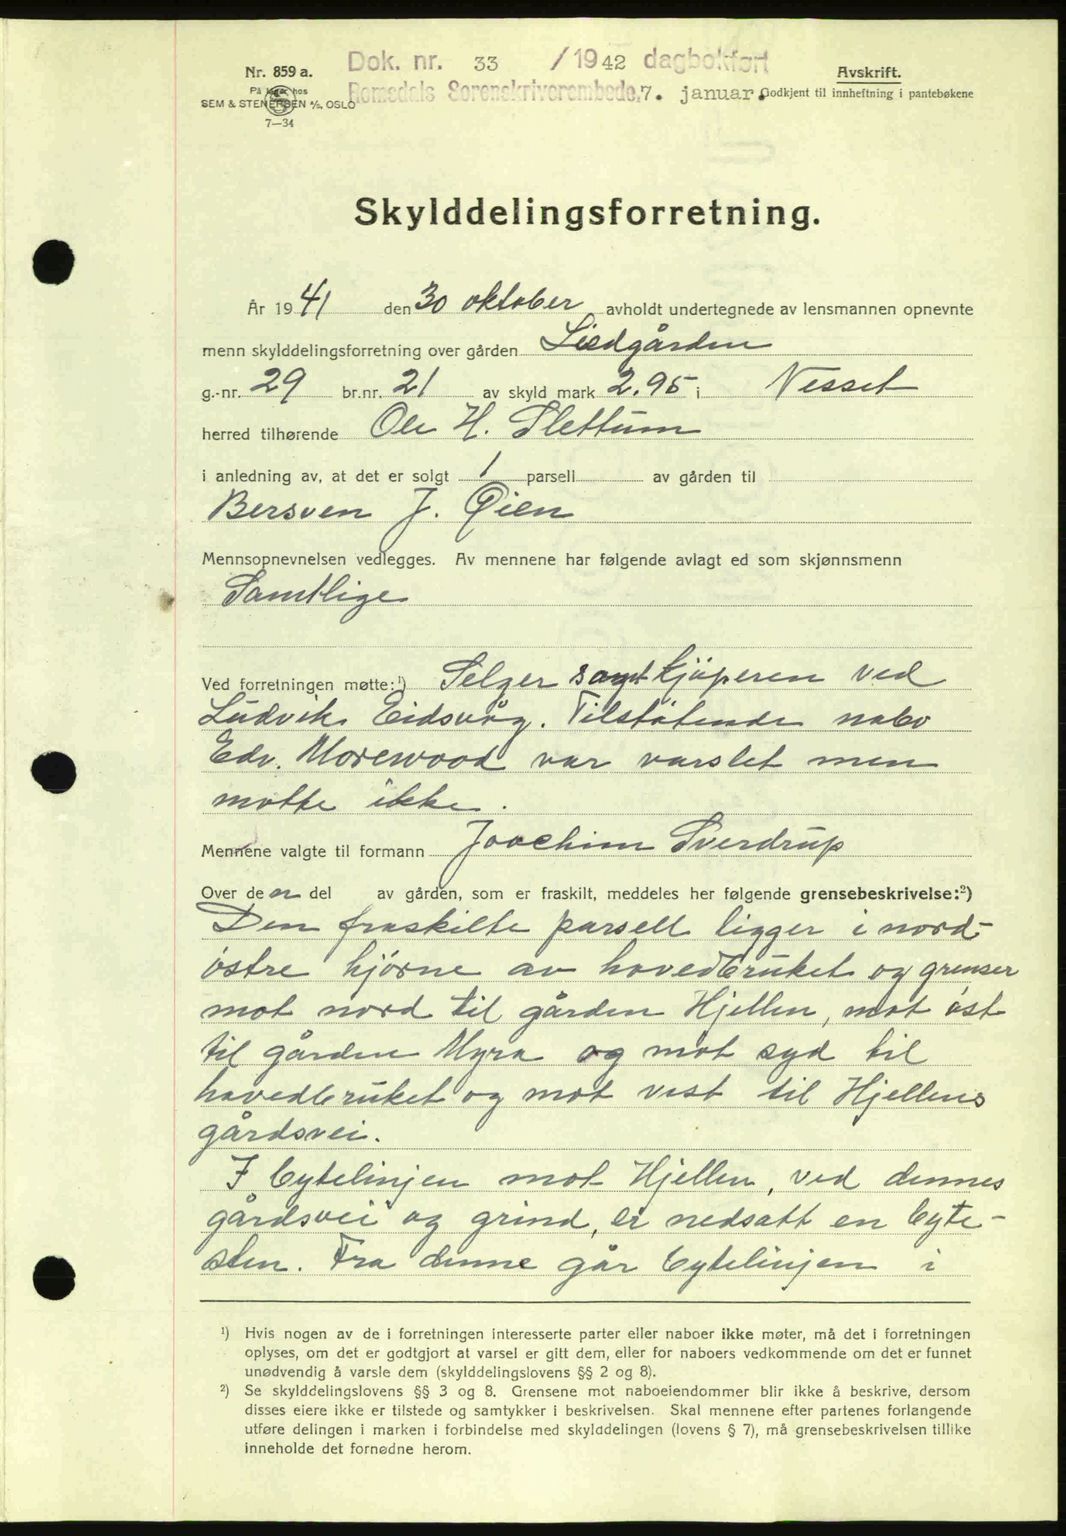 Dok. nr. 33 /1942 dagbokført
Romsdals Sorenskriverembede, 7. januar.
Nr. 859 a.
På lager hos
SEM & STENERSEN A/S, OSLO
7—34
Avskrift.
Godkjent til innheftning i pantebøkene
Skylddelingsforretning.
År 1941 den 30 oktober avholdt undertegnede av lensmannen opnevnte
menn skylddelingsforretning over gården Liedgården
g.-nr. 29 br.nr. 21 av skyld mark 2.95 i Nesset
herred tilhørende Ole H. Slettum
i anledning av, at det er solgt 1 parsell av gården til
Bersven J. Øien
Mennsopnevnelsen vedlegges. Av mennene har følgende avlagt ed som skjønnsmenn
Samtlige
Ved forretningen møtte:¹) Selger samt kjøperen ved
Ludvik Eidsvåg. Tilstøtende nabo
Edv. Morewood var varslet men
møtte ikke.
Mennene valgte til formann Joachim Sverdrup
Over den del av gården, som er fraskilt, meddeles her følgende grensebeskrivelse:²)
Den fraskilte parsell ligger i nord-
østre hjørne av hovedbruket og grenser
mot nord til gården Hjellen, mot øst
til gården Myra og mot syd til
hovedbruket og mot vest til Hjellens
gårdsvei.
I bytelinjen mot Hjellen, ved dennes
gårdsvei og grind, er nedsatt en byte-
sten. Fra denne går bytelinjen i
¹) Hvis nogen av de i forretningen interesserte parter eller naboer ikke møter, må det i forretningen
oplyses, om det er godtgjort at varsel er gitt dem, eller for naboers vedkommende om det er funnet
unødvendig å varsle dem (skylddelingslovens §§ 2 og 8).
²) Se skylddelingslovens §§ 3 og 8. Grensene mot naboeiendommer blir ikke å beskrive, dersom
disses eiere ikke er tilstede og samtykker i beskrivelsen. Skal mennene efter partenes forlangende
utføre delingen i marken i forbindelse med skylddelingen (lovens § 7), må grensebeskrivelsen tillike
inneholde det fornødne herom.